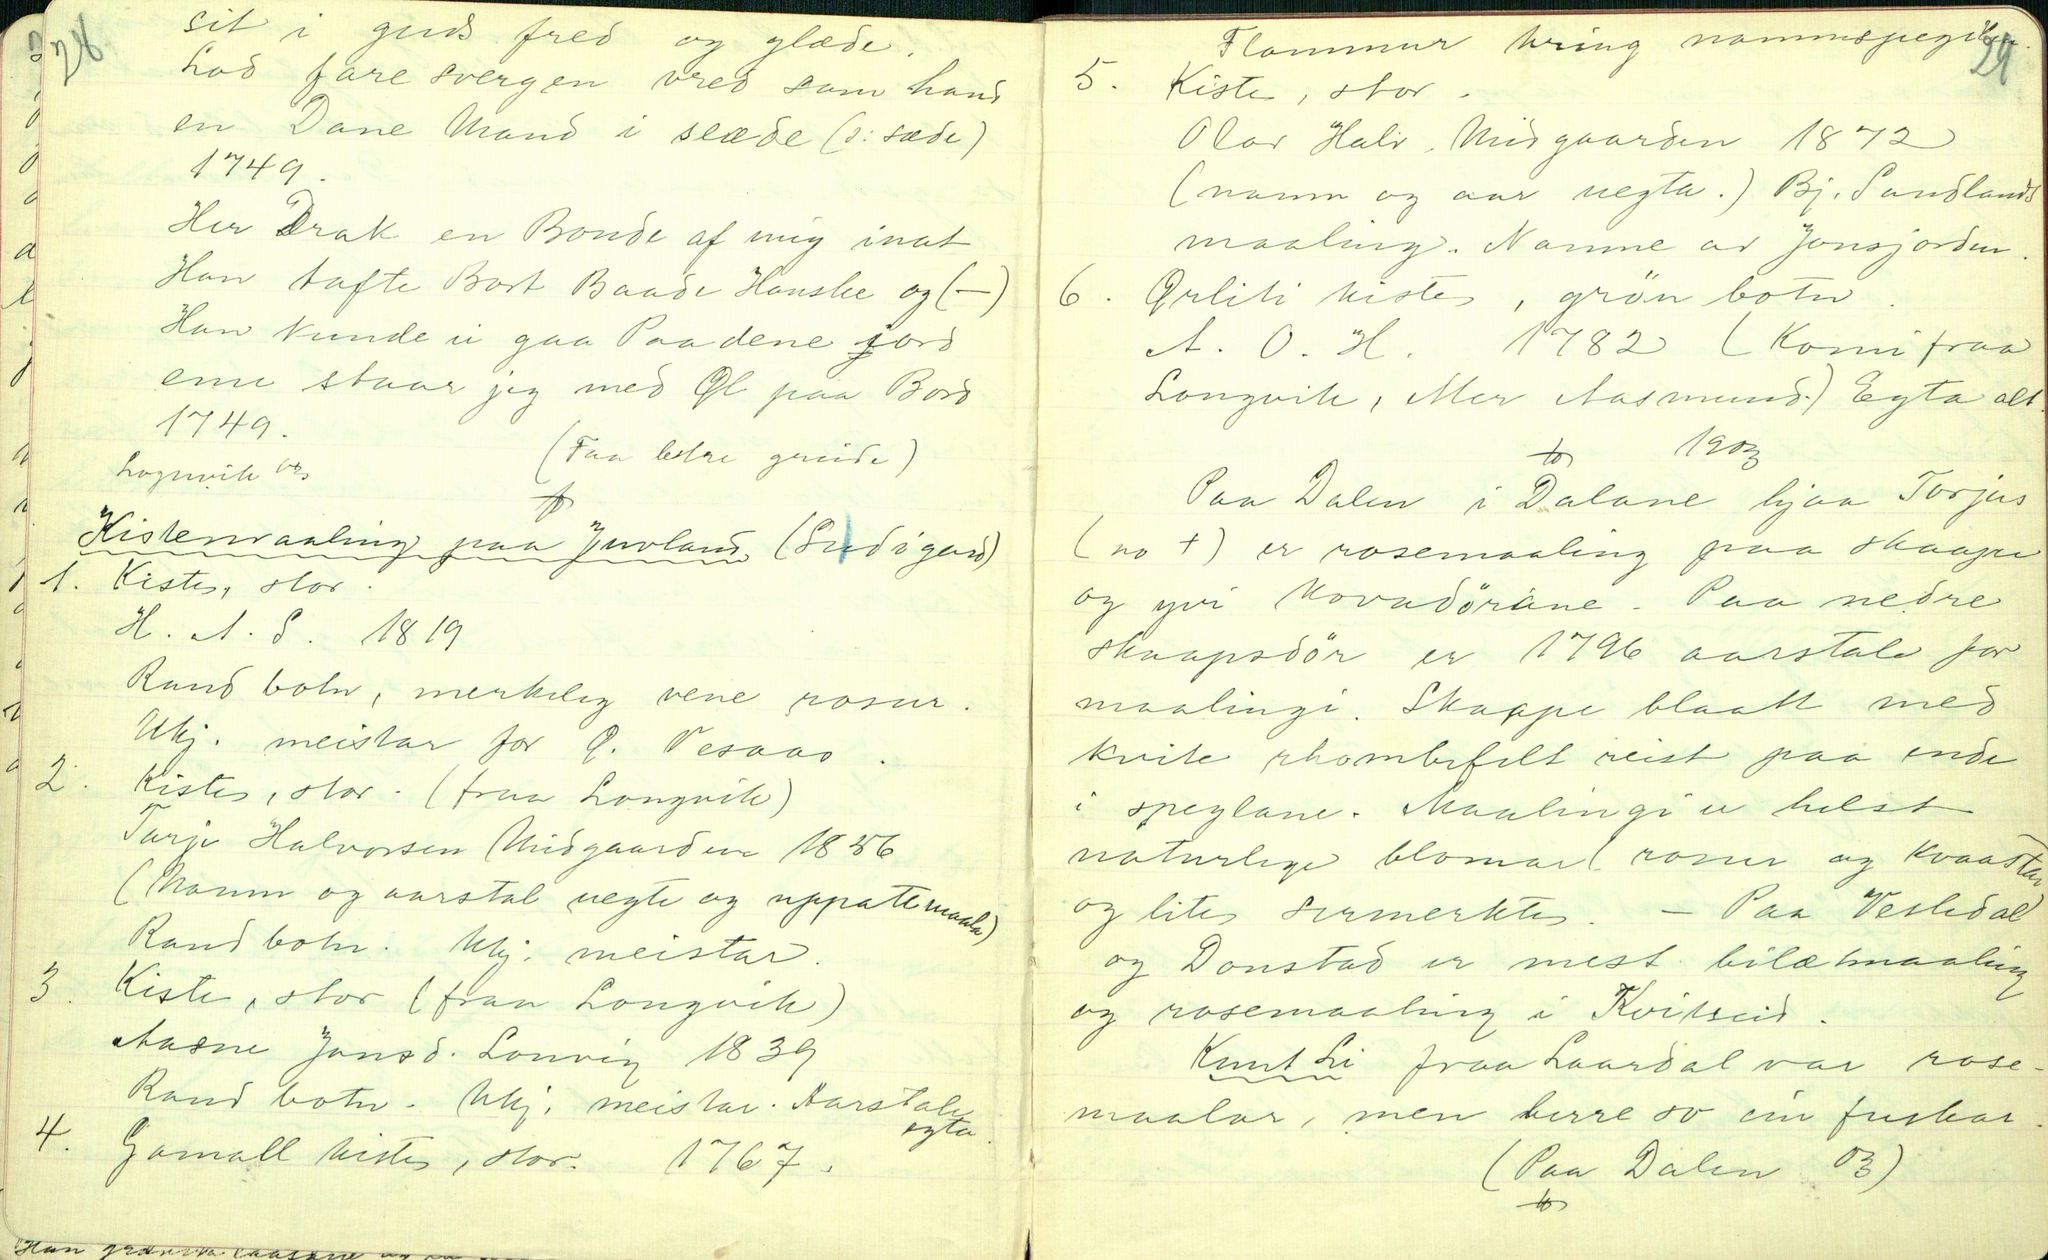 28
sit i guds fred og glæde.
Lad fare svergen vred som hand
en Dane Mand i slæde (ɔ: sæde)
1749.
Her Drak en Bonde af mig inat
Han tafte Bort Baade Hanske og (—)
Han kunde ei gaa Paa dene jord
eme staar jeg med Øl paa Bord
1749.
(Faa betre greide)
Kistemaaling paa Juvland (Sudigard)
1. Kiste, stor.
H. A. S. 1819
Raud botn, merkeleg vene rosur.
Ukj. meistar for O. Vesaas.
2. Kiste, stor. (fraa Longvik)
Tarje Halvorsen Midgaarden 1856
(Namn og aarstal uegte og uppatt maala)
Raud botn. Ukj. meistar.
3. Kiste, stor (fraa Longvik)
Aasne Jonsd. Lonvig 1839
Raud botn. Ukj. meistar. Aarstale
egta.
4. Gamall kiste, stor. 1767.
29
Flammur kring namnspegilen.
5. Kiste, stor.
Olav Halv. Midgaarden 1872
(namn og aar uegta.) Bj. Sandlands
maaling. Namne av Jonsjorden.
6. Ørliti kiste, grön botn.
A. O. H. 1782 (Komi fraa
Longvik, Mer Aasmund.) Egta alt.
1903
Paa Dalen i Dalane hjaa Torjus
(no +) er rosemaaling paa skaape
og yvi kovadörane. Paa nedre
skaapsdör er 1796 aarstale for
maalingi. Skaape blaatt med
kvite rhombefelt reist paa ende
i speglane. Maalingi er helst
naturlege blomar (rosur og kvaastar
og lite sermerkte. — Paa Vesledal
og Donstad er mest bilætmaaling
og rosemaaling i Kvitseid.
Knut Li fraa Laardal var rose-
maalar, men berre so ein fuskar.
(Paa Dalen 03)